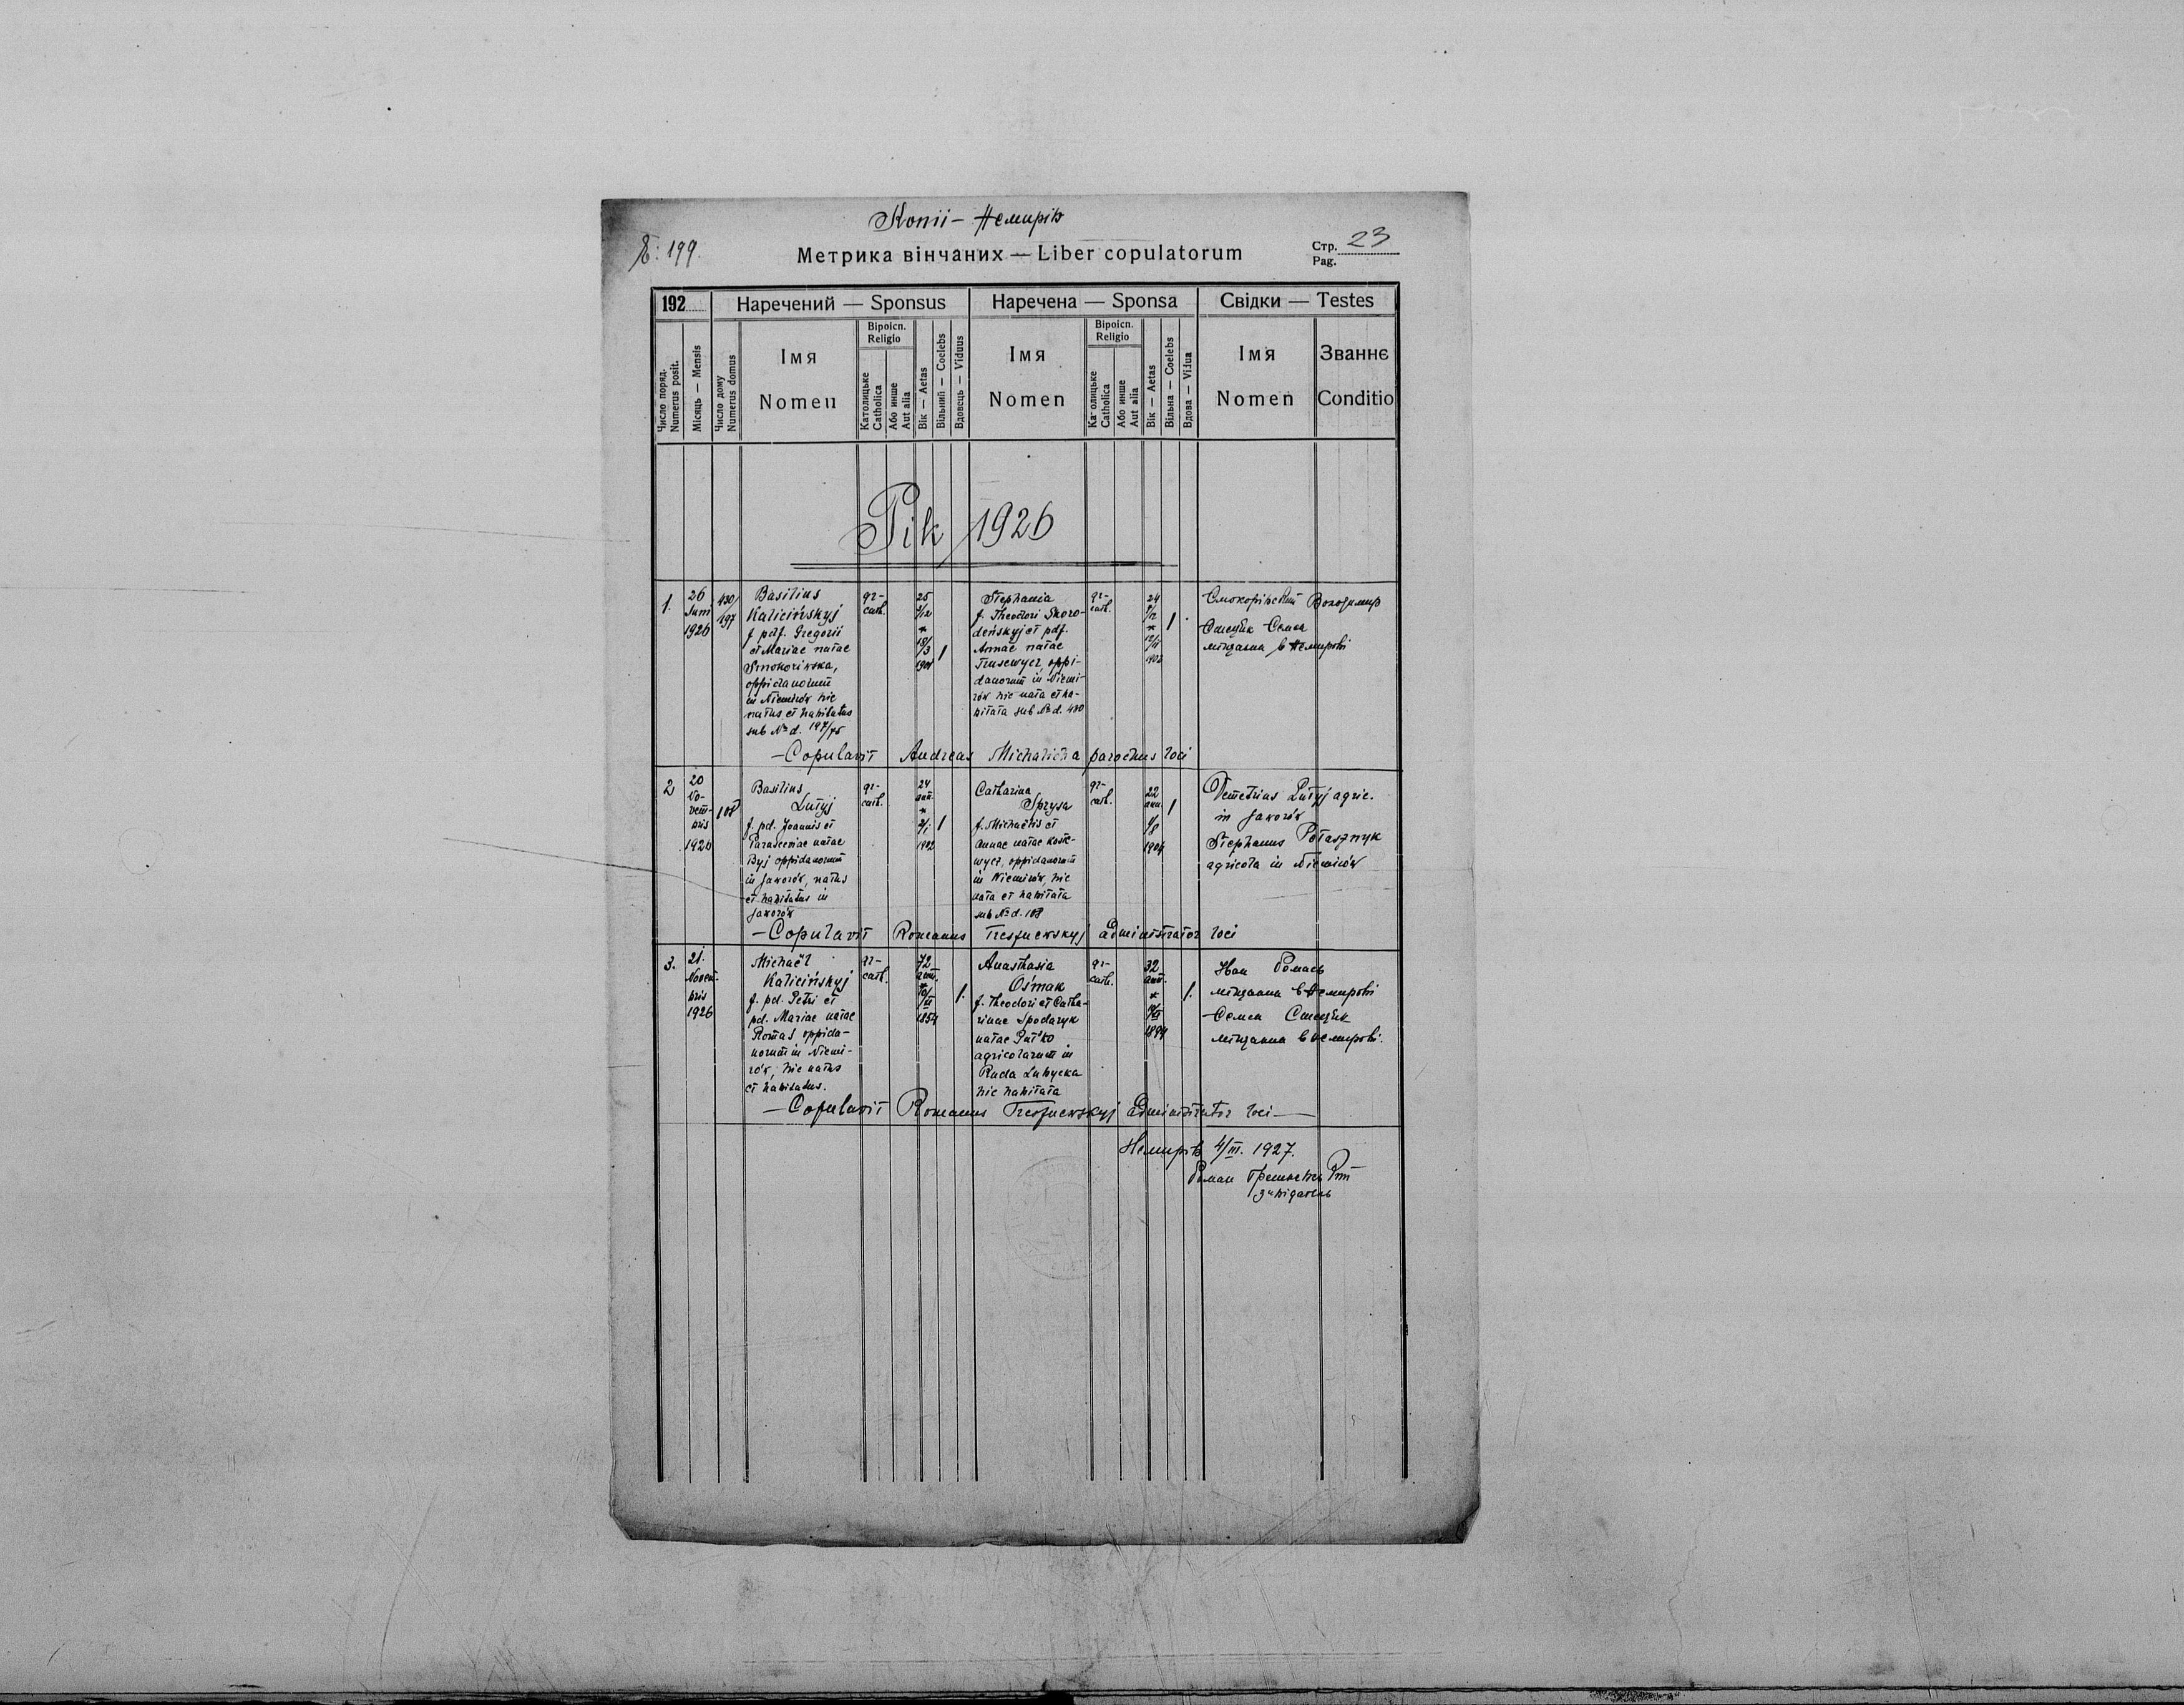 Копії - Немирів
E: 199.
Метрика вінчаних — Liber copulatorum
Стр. Pag. 23
192
Наречений — Sponsus
Наречена — Sponsa
Свідки — Testes
Число поряд. Numerus posit.
Місяць — Mensis
Число дому Numerus domus
Імя Nomen
Віроісп. Religio
Католицьке Catholica
Або инше Aut alia
Вік — Aetas
Вільний — Coelebs
Вдовець — Viduus
Імя Nomen
Віроісп. Religio
Католицьке Catholica
Або инше Aut alia
Вік — Aetas
Вільна — Coelebs
Вдова — Vidua
Імя Nomen
Званнє Conditio
Рік 1926
1.
26
Juni
1926
430/
197
Basilius
Kalicińskyj
f pdf. Gregorii
et Mariae natae
Smokoriwska,
oppidanorum
in Niemirów hic
natus et habitatus
sub No d. 197/75
gr-
cath.
25
3/12
*
18/3
1901
1
Stephania
f. Theodori Skoro-
deńskyj et pdf.
Annae natae
Trusewycz, oppi-
danorum in Niemi-
rów hic nata et ha-
bitata sub No d. 430
gr-
cath.
24
*
1902
1
Смокорівский Володимир
Стецик Семен
міщане в Немирові
— Copulavit Andreas Michalicha parochus loci
2
20
No-
vem-
bris
1926
108
Basilius
Lutyj
f. pd. Joannis et
Parasceniae natae
Byj oppidanorum
in Jaworów, natus
et habitatus in
Jaworów
gr-
cath.
24
ann.
*
2/1
1902
1
Catharina
Sprysa
f. Michaëlis et
Annae natae Kost-
wycz, oppidanorum
in Niemirów, hic
nata et habitata
sub No d. 108
gr-
cath.
22
ann.
1/8
1904
1
Demetrius Lutyj agric.
in Jaworów
Stephanus Potasznyk
agricola in Niemirów
— Copulavit Romanus Tresznewskyj administrator loci
3.
21.
Novem-
bris
1926
Michaël
Kaliciński
f. pd. Petri et
pd. Mariae natae
Romas oppida-
norum in Niemi-
rów, hic natus
et habitatus.
gr-
cath.
72
ann.
*
1854
1.
Anasthasia
Ośmak
f. Theodori et Catha-
rinae Spodaryk
natae Put'ko
agricolarum in
Ruda Lubycka
hic habitata
gr-
cath.
32
ann.
*
1894
1.
Иван Ромась
міщанин в Немирові
Семен Стецик
міщанин в Немирові.
— Copulavit Romanus Tresznewskyj administrator loci —
Немирів 4/III. 1927.
Роман
завідатель